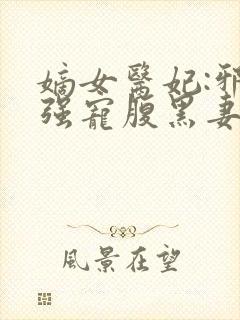 嫡女醫妃:邪
强寵腹黑妻
風景在望